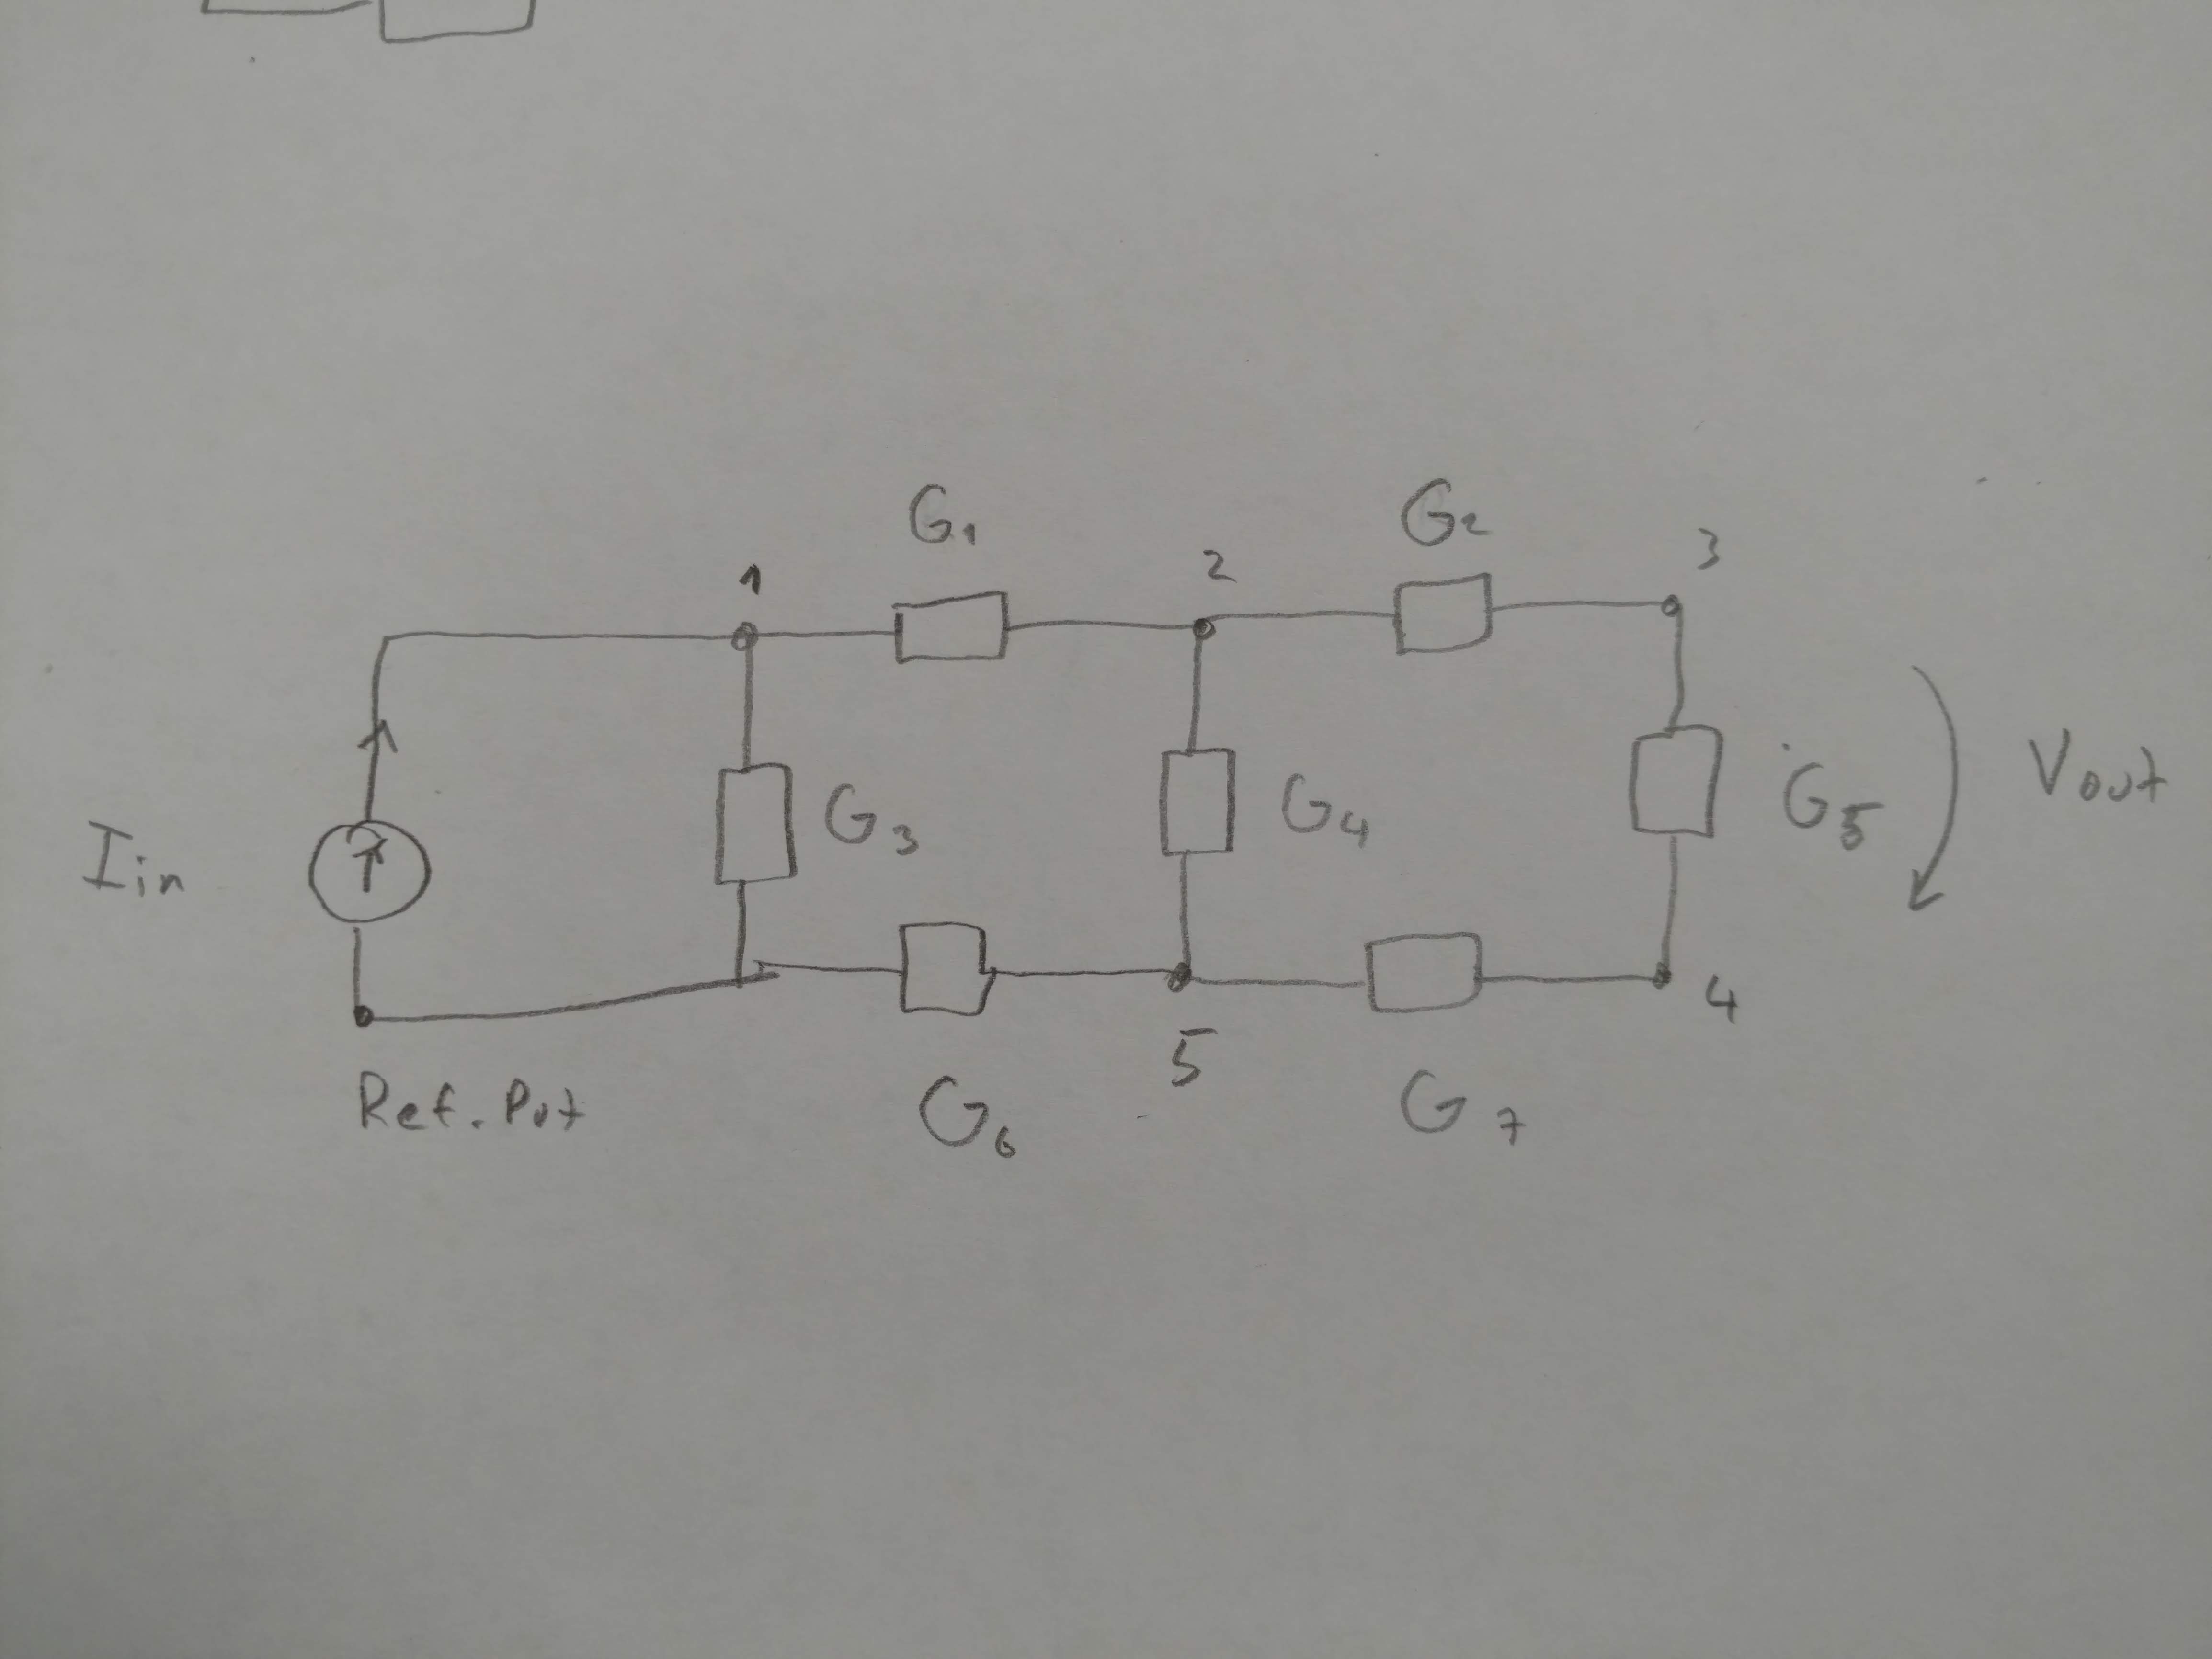 G1
G2
1
2
3
Iin
G3
G4
G5
Vout
Ref. Pot
G6
5
G7
4